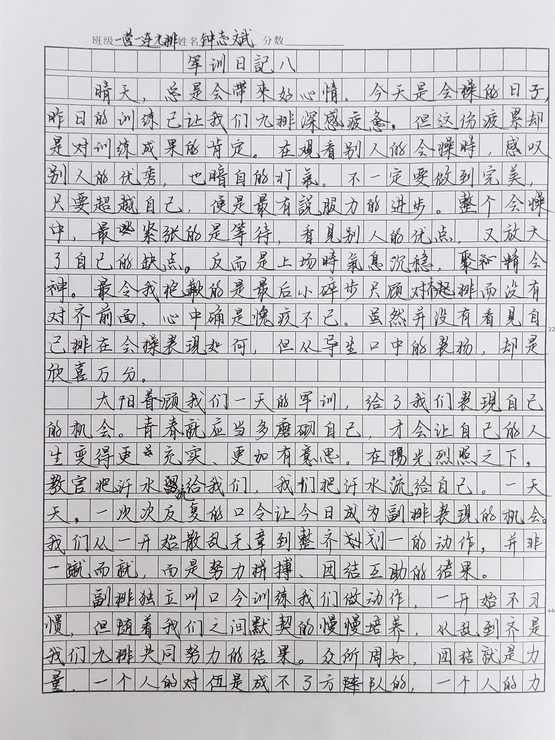 班级一营一连九排姓名钟志斌 分数
军训日記八
晴天，总是会帶來好心情。今天是会操的日子，
昨日的训练已让我们九排深感疲惫。但这份疲累却
是对训练成果的肯定。在观看别人的会操時，感叹
别人的优秀，也暗自的打氣。不一定要做到完美，
只要超越自己，便是最有説服力的进步。整个会操
中，最紧张的是等待，看見别人的优点，又放大
了自己的缺点。反而是上场時氣息沉稳，聚精会
神。最令我抱歉的是最后小碎步只顾对齐起排而没有
对齐前面，心中确是愧疚不已。虽然并没有看見自
己排在会操表现如何，但从导生口中的表扬，却是
欣喜万分。
太阳眷顾我们一天的军训，给了我们表現自己
的机会。青春就应当多磨砺自己，才会让自己的人
生变得更充实、更加有意思。在陽光烈照之下，
教官把汗水留给我们，我们把汗水流给自己。一天
天，一次次反复的口令让今日成为副排表现的机会。
我们从一开始散乱无章到整齐划划一的动作，并非
一蹴而就，而是努力拼搏、团结互助的结果。
副排独立叫口令训练我们做动作，一开始不习
慣，但随着我们之间默契的慢慢培养，从乱到齐是
我们九排共同努力的结果。众所周知，团结就是力
量，一个人的对伍是成不了方阵队的，一个人的力
22
44